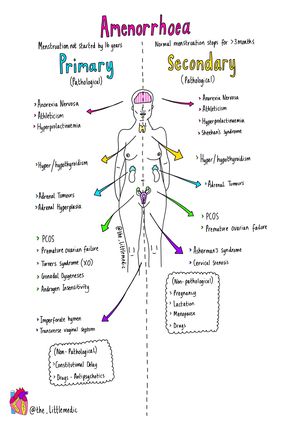 Amenorrhoea
Menstruation not started by 16 years
Normal menstruation stops for >3months
Primary
(Pathological)
> Anorexia Nervosa
> Athleticism
> Hyperprolactinemia
> Hyper/hypothyroidism
> Adrenal Tumours
> Adrenal Hyperplasia
> PCOS
> Premature ovarian failure
> Turners Syndrome (XO)
> Gonadal Dysgeneses
> Androgen Insensitivity
> Imperforate hymen
> Transverse vaginal septum
(Non-Pathological)
> Constitutional Delay
> Drugs - Antipsychotics
Secondary
(Pathological)
> Anorexia Nervosa
> Athleticism
> Hyperprolactinaemia
> Sheehan's syndrome
> Hyper/hypothyroidism
> Adrenal Tumours
> PCOS
> Premature ovarian failure
> Asherman's Syndrome
> Cervical Stenosis
(Non-pathological)
> Pregnancy
> Lactation
> Menopause
> Drugs
@the_littlemedic
@the_littlemedic